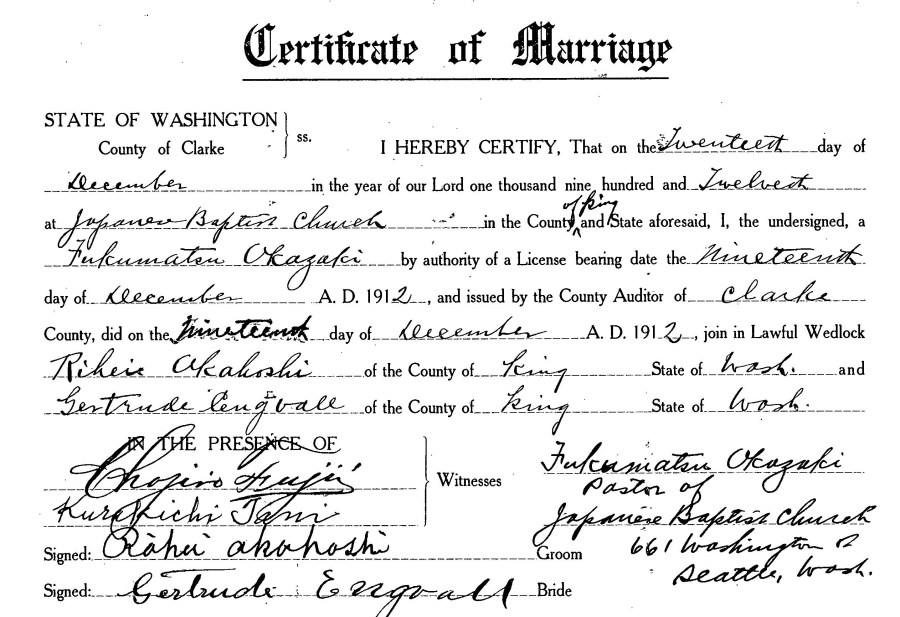 Certificate of Marriage
STATE OF WASHINGTON
County of Clarke
ss.
I HEREBY CERTIFY, That on the Twenteeth day of
December in the year of our Lord one thousand nine hundred and Twelveth
at Japanese Baptist Church in the County of King and State aforesaid, I, the undersigned, a
Fukumatsu Okazaki by authority of a License bearing date the Nineteenth
day of December A. D. 1912, and issued by the County Auditor of Clarke
County, did on the Nineteenth day of December A. D. 1912, join in Lawful Wedlock
Riheie Akahoshi of the County of King State of Wash. and
Gertrude Engvall of the County of King State of Wash.
IN THE PRESENCE OF
Chojiro Fujii
Kurakichi Tani
Witnesses
Fukumatsu Okazaki
Pastor of
Japanese Baptist Church
661 Washington
Seattle, Wash.
Signed: Rihei Akahoshi Groom
Signed: Gertrude Engvall Bride